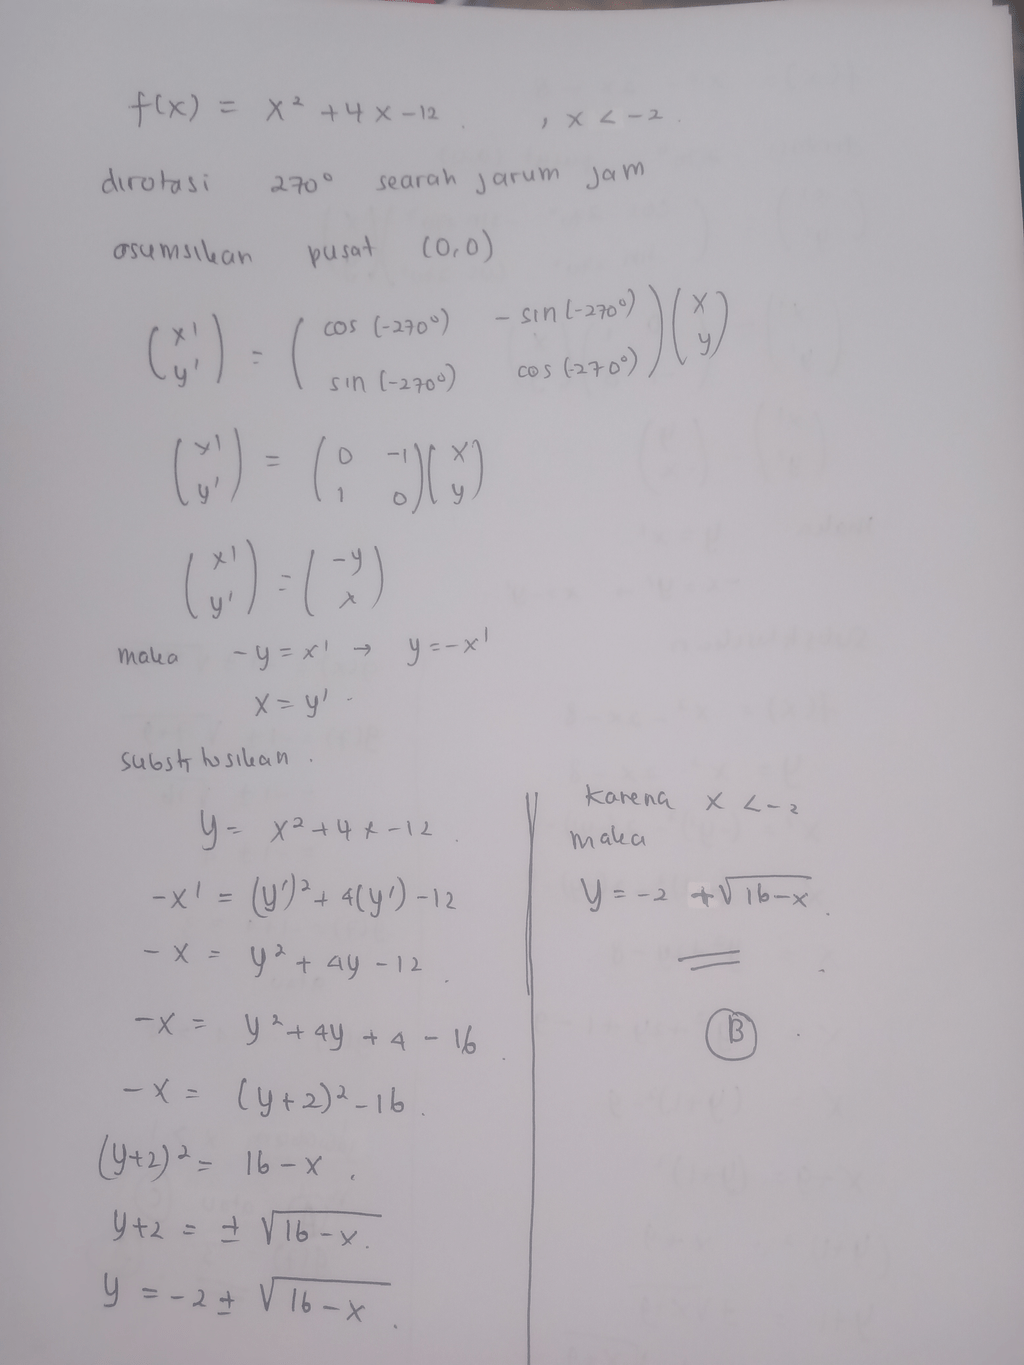 f(x) = x² + 4x - 12 , x < -2
dirotasi 270° searah jarum jam
asumsikan pusat (0,0)
(x' y') = (cos (-270°) - sin (-270°) sin (-270°) cos (-270°)) (x y)
(x' y') = (0 -1 1 0) (x y)
(x' y') = (-y x)
maka -y = x' → y = -x'
x = y'
substitusikan.
y = x² + 4x - 12
-x' = (y')² + 4(y') - 12
-x = y² + 4y - 12
-x = y² + 4y + 4 - 16
-x = (y+2)² - 16.
(y+2)² = 16 - x.
y+2 = ± √16 - x.
y = -2 ± √16 - x.
karena x < -2
maka
y = -2 + √16 - x.
B